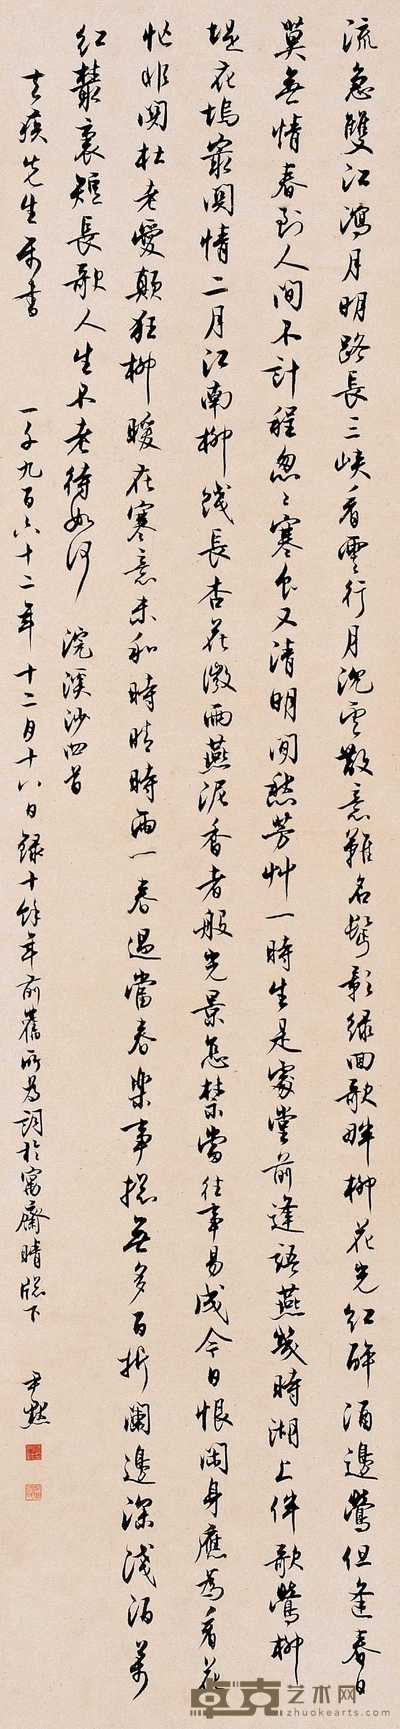 流急雙江瀉月明路長三峽看雲行月沈雲散意難名鬢影綠回歌畔柳花光紅醉酒邊鶯但逢春日
莫無情春到人間不計程忽忽寒食又清明閒愁芳艸一時生是處堂前逢語燕幾時湖上伴歌鶯柳
堤花塢最關情二月江南柳綫長杏花微雨燕泥香者般光景怎禁當往事易成今日恨閒身應為看花
忙非關杜老愛顛狂柳暖花寒意未和時晴時雨一春過當春樂事摠無多百折闌邊深淺酒萬
紅叢裏短長歌人生不老待如何 浣溪沙四首
去疾先生屬書 一千九百六十二年十二月十八日錄十餘年前舊所為詞於齋晴牕下 尹默
卓克艺术网
zhuokearts.com